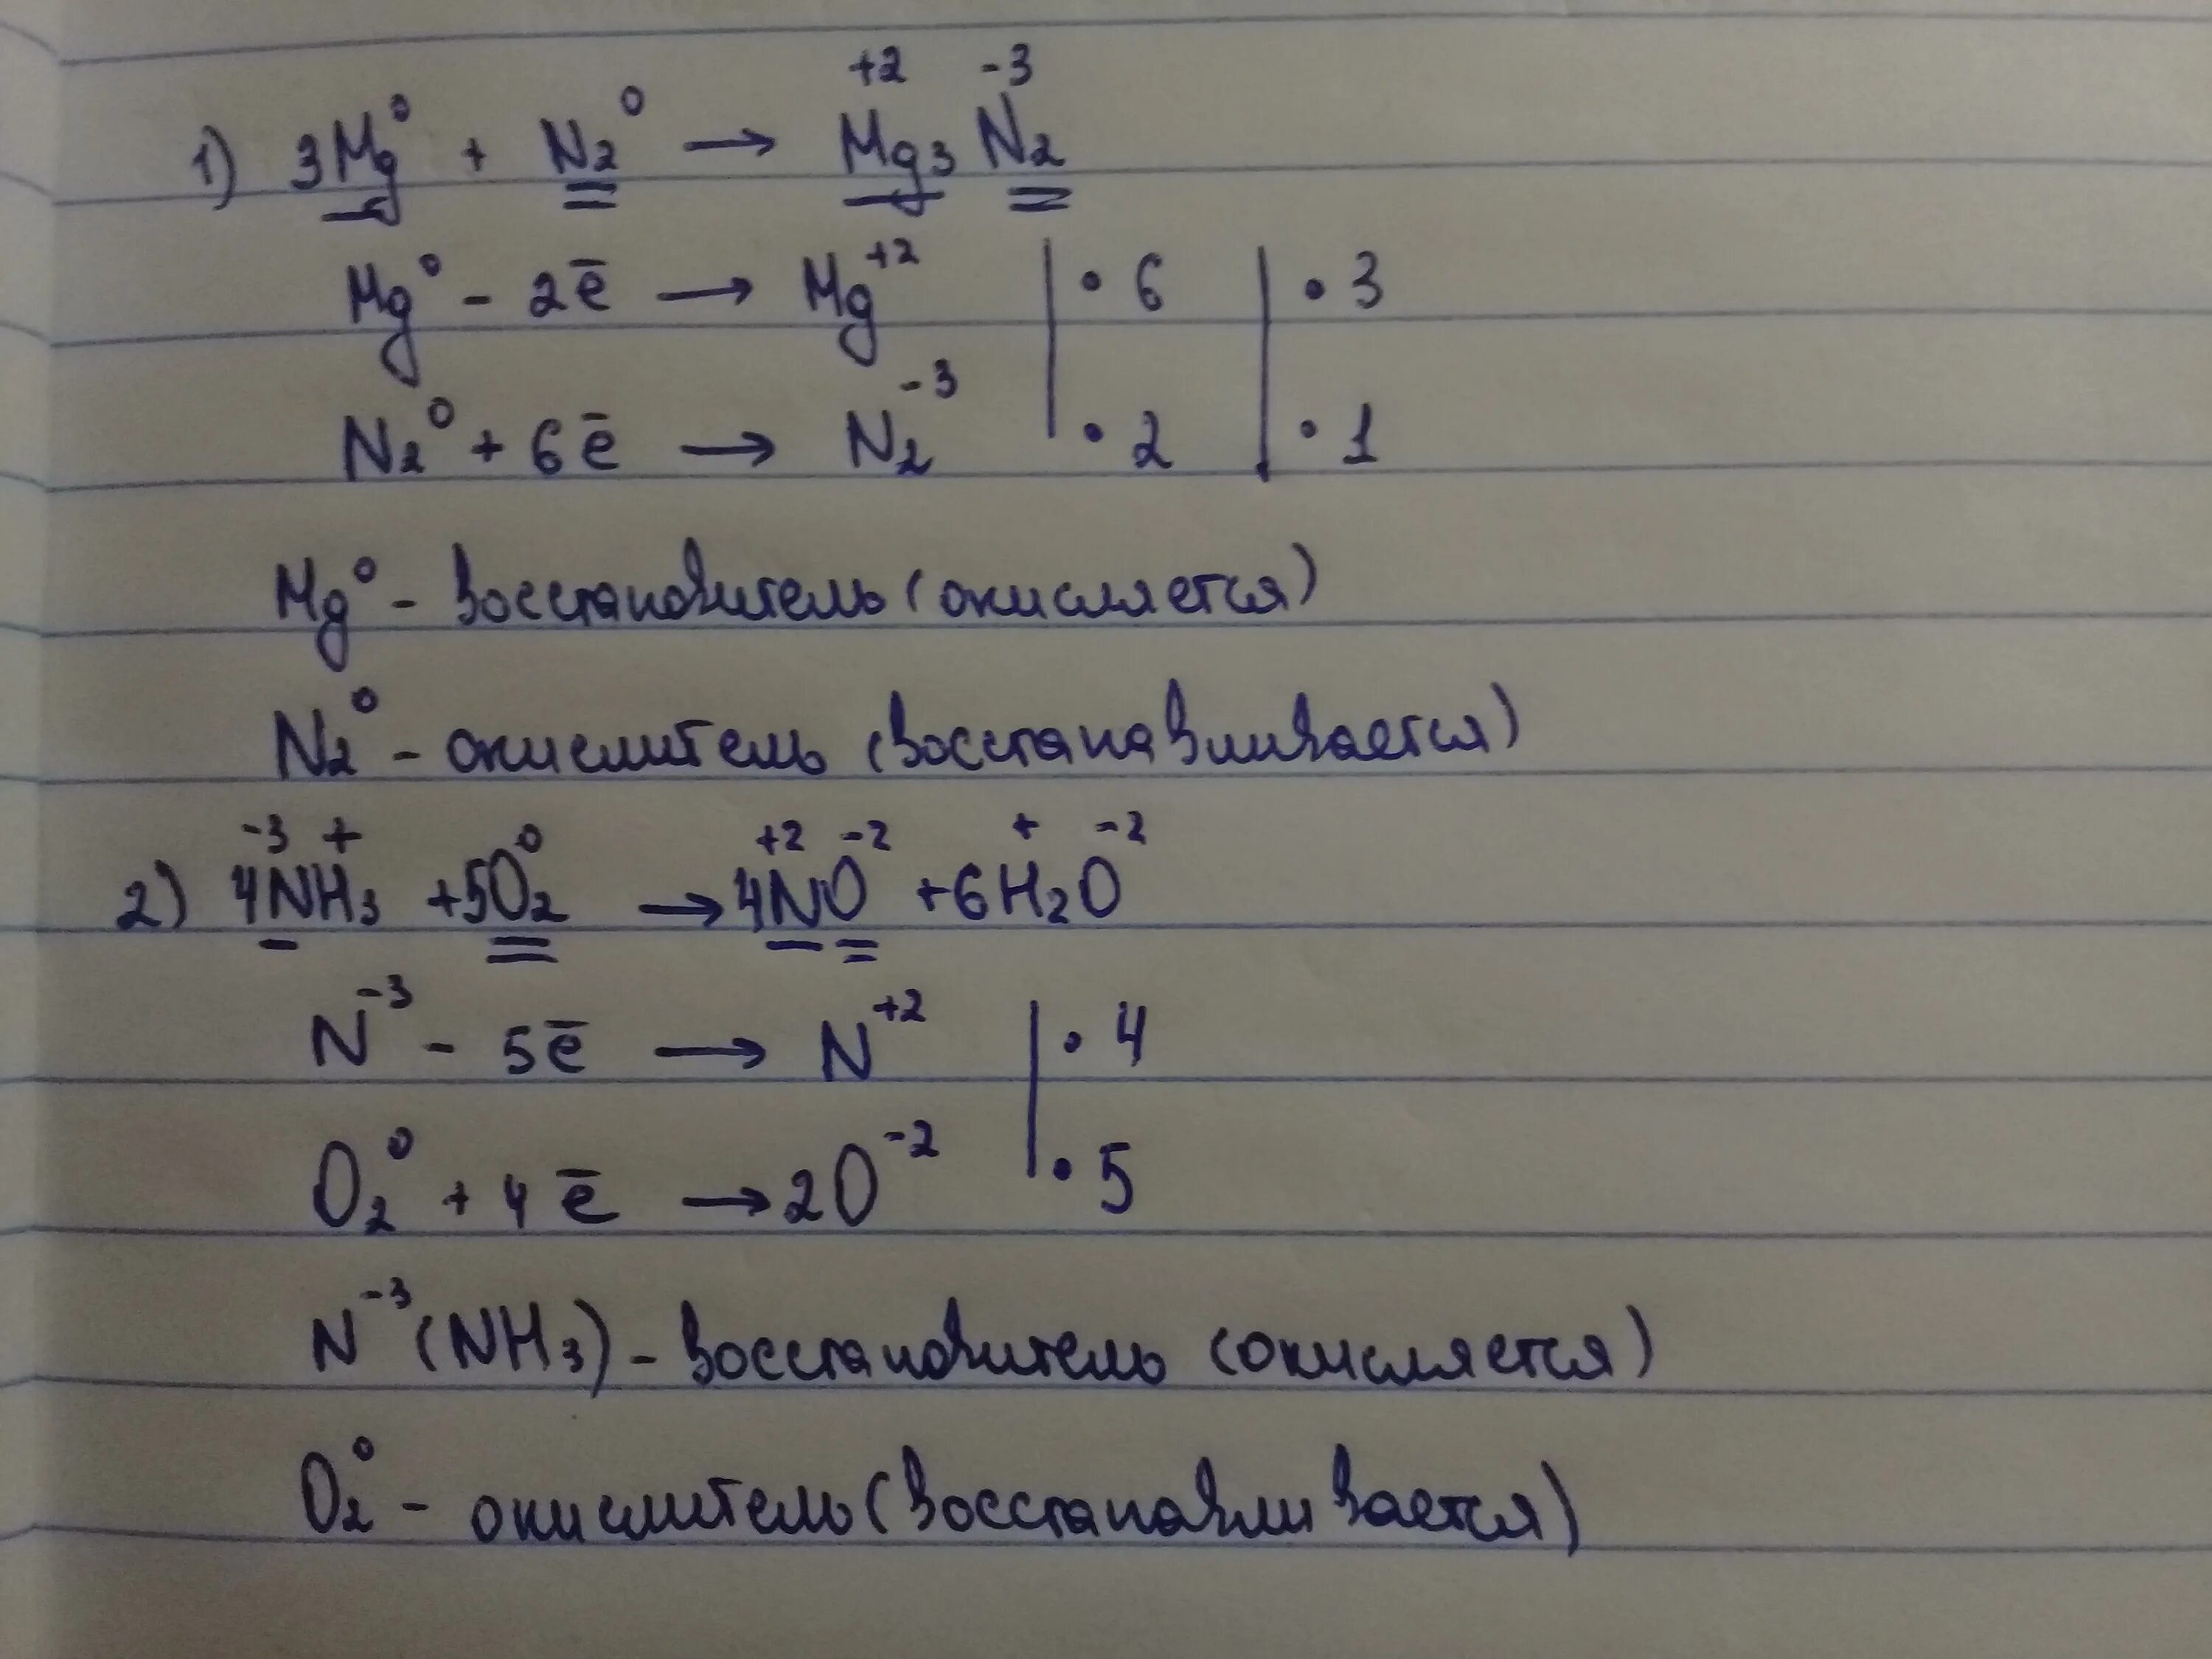 +2 -3
1) 3Mg⁰ + N₂⁰ → Mg₃N₂
Mg⁰ - 2ē → Mg⁺² | • 6 | • 3
N₂⁰ + 6ē → N₂⁻³ | • 2 | • 1
Mg⁰ - восстановитель (окисляется)
N₂⁰ - окислитель (восстанавливается)
-3 + 0 +2 -2 + -2
2) 4NH₃ + 5O₂ → 4NO + 6H₂O
N⁻³ - 5ē → N⁺² | • 4
O₂⁰ + 4ē → 2O⁻² | • 5
N⁻³ (NH₃) - восстановитель (окисляется)
O₂⁰ - окислитель (восстанавливается)